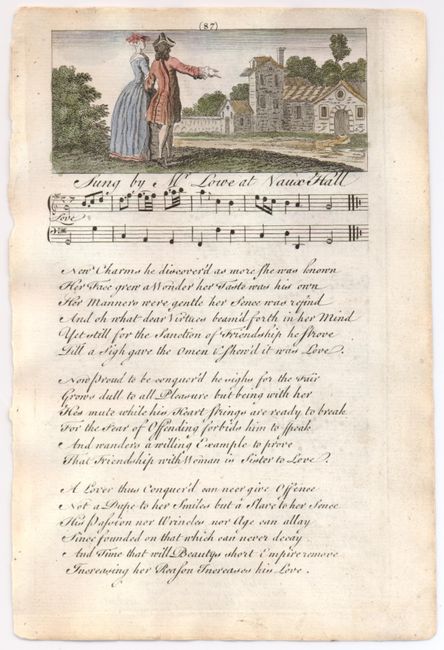 (87)
Sung by Mr Lowe at Vaux Hall
Love
New Charms he discover'd as more she was known
Her Face grew a Wonder her Taste was his own
Her Manners were gentle her Sence was refind
And oh what dear Virtues beam'd forth in her Mind
Yet still for the Sanction of Friendship he strove
Till a Sigh gave the Omen & shew'd it was Love.
Now proud to be conquer'd he sighs for the Fair
Grows dull to all Pleasure but being with her
He's mute while his Heart strings are ready to break
For the Fear of Offending forbids him to speak
And wanders a willing Example to prove
That Friendship with Woman is Sister to Love.
A Lover thus Conquer'd can neer give Offence
Not a Dupe to her Smiles but a Slave to her Sence
His Passion nor Wrincles nor Age can allay
Since founded on that which can never decay
And Time that will Beautys short Empire remove
Increasing her Reason Increases his Love.